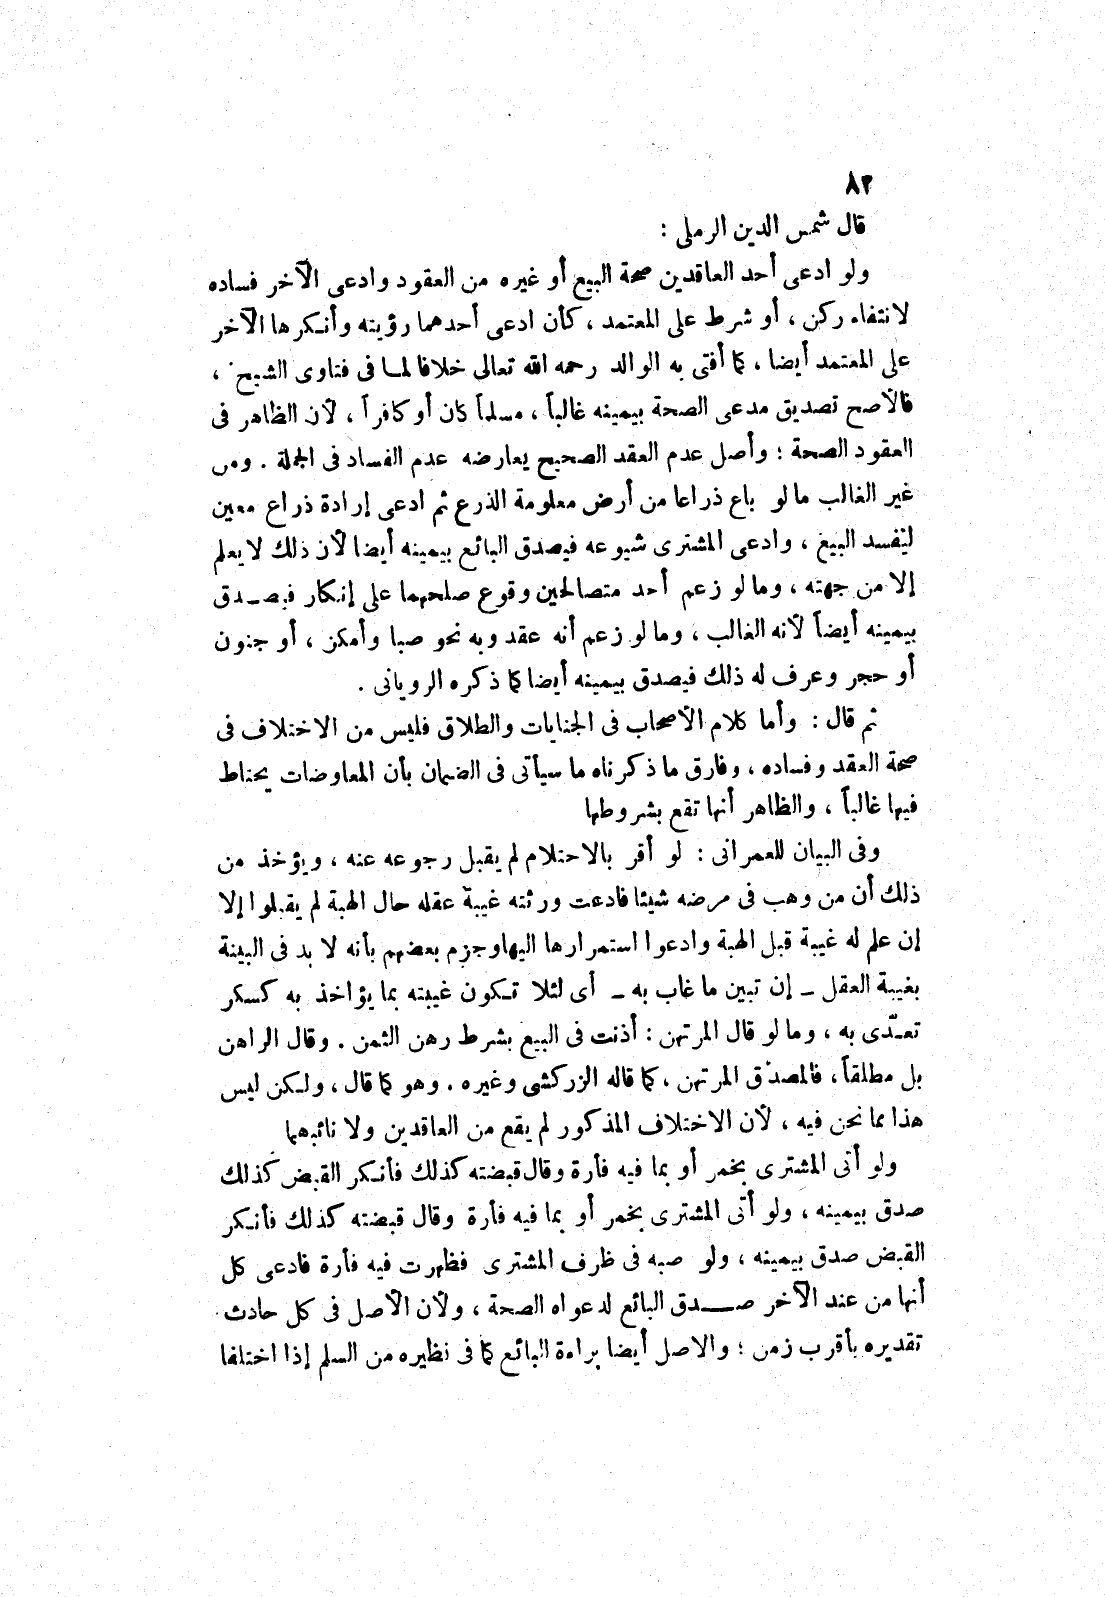 ٨٢
قال شمس الدين الرملى :
ولو ادعى أحد العاقدين صحة البيع أو غيره من العقود وادعى الآخر فساده
لانتفاء ركن ، أو شرط على المعتمد ، كأن ادعى أحدهما رؤيته وأنكرها الآخر
على المعتمد أيضا ، كما أفتى به الوالد رحمه الله تعالى خلافا لما فى فتاوى الشيخ ،
فالأصح تصديق مدعى الصحة بيمينه غالباً ، مسلماً كان أو كافراً ، لأن الظاهر فى
العقود الصحة ؛ وأصل عدم العقد الصحيح يعارضه عدم الفساد فى الجملة . ومن
غير الغالب ما لو باع ذراعا من أرض معلومة الذرع ثم ادعى إرادة ذراع معين
ليفسد البيع ، وادعى المشترى شيوعه فيصدق البائع بيمينه أيضا لأن ذلك لا يعلم
إلا من جهته ، وما لو زعم أحد متصالحين وقوع صلحهما على إنكار فيصدق
بيمينه أيضاً لأنه الغالب ، وما لو زعم أنه عقد وبه نحو صبا وأمكن ، أو جنون
أو حجر وعرف له ذلك فيصدق بيمينه أيضا كما ذكره الرويانى .
ثم قال : وأما كلام الأصحاب فى الجنايات والطلاق فليس من الاختلاف فى
صحة العقد وفساده ، وفارق ما ذكرناه ما سيأتى فى الضمان بأن المعاوضات يحتاط
فيها غالباً ، والظاهر أنها تقع بشروطها
وفى البيان للعمرانى : لو أقر بالاحتلام لم يقبل رجوعه عنه ، ويؤخذ من
ذلك أن من وهب فى مرضه شيئا فادعت ورثته غيبة عقله حال الهبة لم يقبلوا إلا
إن علم له غيبة قبل الهبة وادعوا استمرارها اليها وجزم بعضهم بأنه لا بد فى البينة
بغيبة العقل ـ إن تبين ما غاب به ـ أى لئلا تكون غيبته بما يؤاخذ به كسكر
تعدّى به ، وما لو قال المرتهن : أذنت فى البيع بشرط رهن الثمن . وقال الراهن
بل مطلقاً ، فالمصدّق المرتهن ، كما قاله الزركشى وغيره . وهو كما قال ، ولكن ليس
هذا مما نحن فيه ، لأن الاختلاف المذكور لم يقع من العاقدين ولا نائبهما
ولو أتى المشترى بخمر أو بما فيه فأرة وقال قبضته كذلك فأنكر القبض كذلك
صدق بيمينه ، ولو أتى المشترى بخمر أو بما فيه فأرة وقال قبضته كذلك فأنكر
القبض صدق بيمينه ، ولو صبه فى ظرف المشترى فظهرت فيه فأرة فادعى كل
أنها من عند الآخر صدق البائع لدعواه الصحة ، ولأن الأصل فى كل حادث
تقديره بأقرب زمن ؛ والاصل أيضا براءة البائع كما فى نظيره من السلم إذا اختلفا